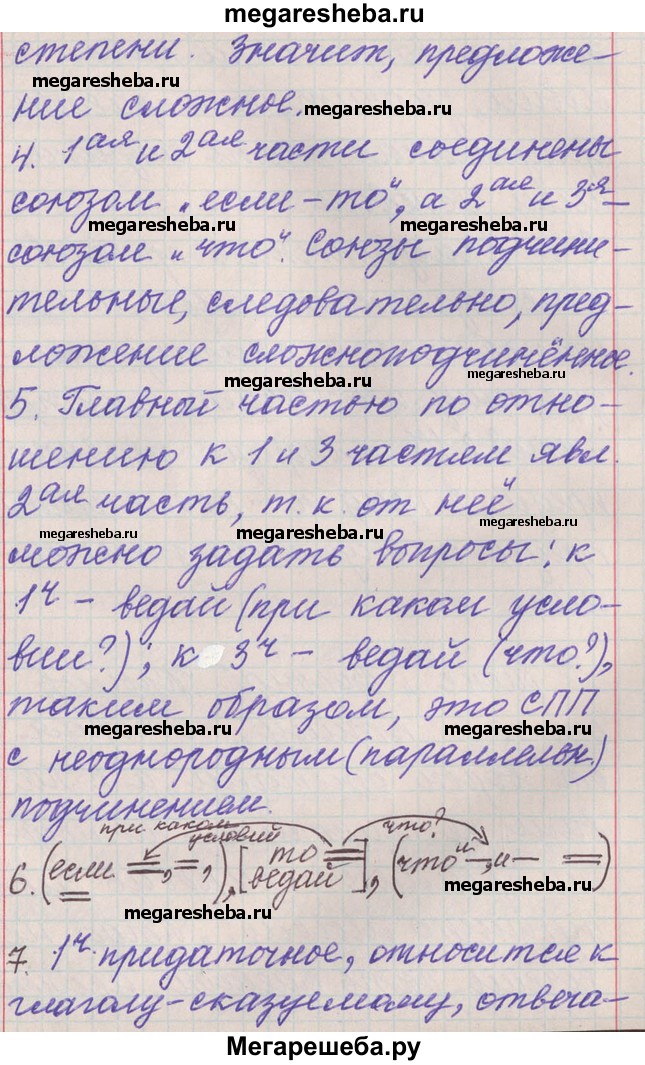 megaresheba.ru
степени. Значит, предложе-
megaresheba.ru
ние сложное.
megaresheba.ru
4. 1ая и 2ая части соединены
союзом „если – то", а 2ая и 3я –
megaresheba.ru megaresheba.ru
союзом „что". Союзы подчини-
тельные, следовательно, пред-
ложение сложноподчинённое.
megaresheba.ru megaresheba.ru
5. Главный частью по отно-
шению к 1 и 3 частям явл.
2ая часть, т.к. от неё
megaresheba.ru megaresheba.ru megaresheba.ru
можно задать вопросы: к
1ч – ведай (при каком усло-
вии?); к 3ч – ведай (что?),
таким образом, это СПП
megaresheba.ru
с неоднородным (параллельн.)
подчинением.
при каком условий что?
6. (если =, =, ), [то = ведай], (что – „и – =)
megaresheba.ru
7. 1ч. придаточное, относится к
megaresheba.ru
глаголу-сказуемому, отвеча-
Мегарешеба.ру